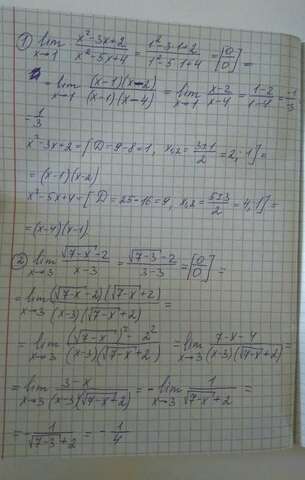 1) lim x→1 (x²-3x+2)/(x²-5x+4) = (1²-3·1+2)/(1²-5·1+4) = [0/0] =
= lim x→1 ((x-1)(x-2))/((x-1)(x-4)) = lim x→1 (x-2)/(x-4) = (1-2)/(1-4) = (-1)/(-3)
= 1/3
x²-3x+2 = [D = 9-8=1, x₁,₂ = (3±1)/2 = 2; 1] =
= (x-1)(x-2)
x²-5x+4 = [D = 25-16=9, x₁,₂ = (5±3)/2 = 4; 1] =
= (x-4)(x-1)
2) lim x→3 (√(7-x) - 2)/(x-3) = (√(7-3) - 2)/(3-3) = [0/0] =
= lim x→3 ((√(7-x) - 2)(√(7-x) + 2))/((x-3)(√(7-x) + 2)) =
= lim x→3 ((√(7-x))² - 2²)/((x-3)(√(7-x) + 2)) = lim x→3 (7-x-4)/((x-3)(√(7-x) + 2))
= lim x→3 (3-x)/((x-3)(√(7-x) + 2)) = - lim x→3 1/(√(7-x) + 2) =
= - 1/(√(7-3) + 2) = - 1/4